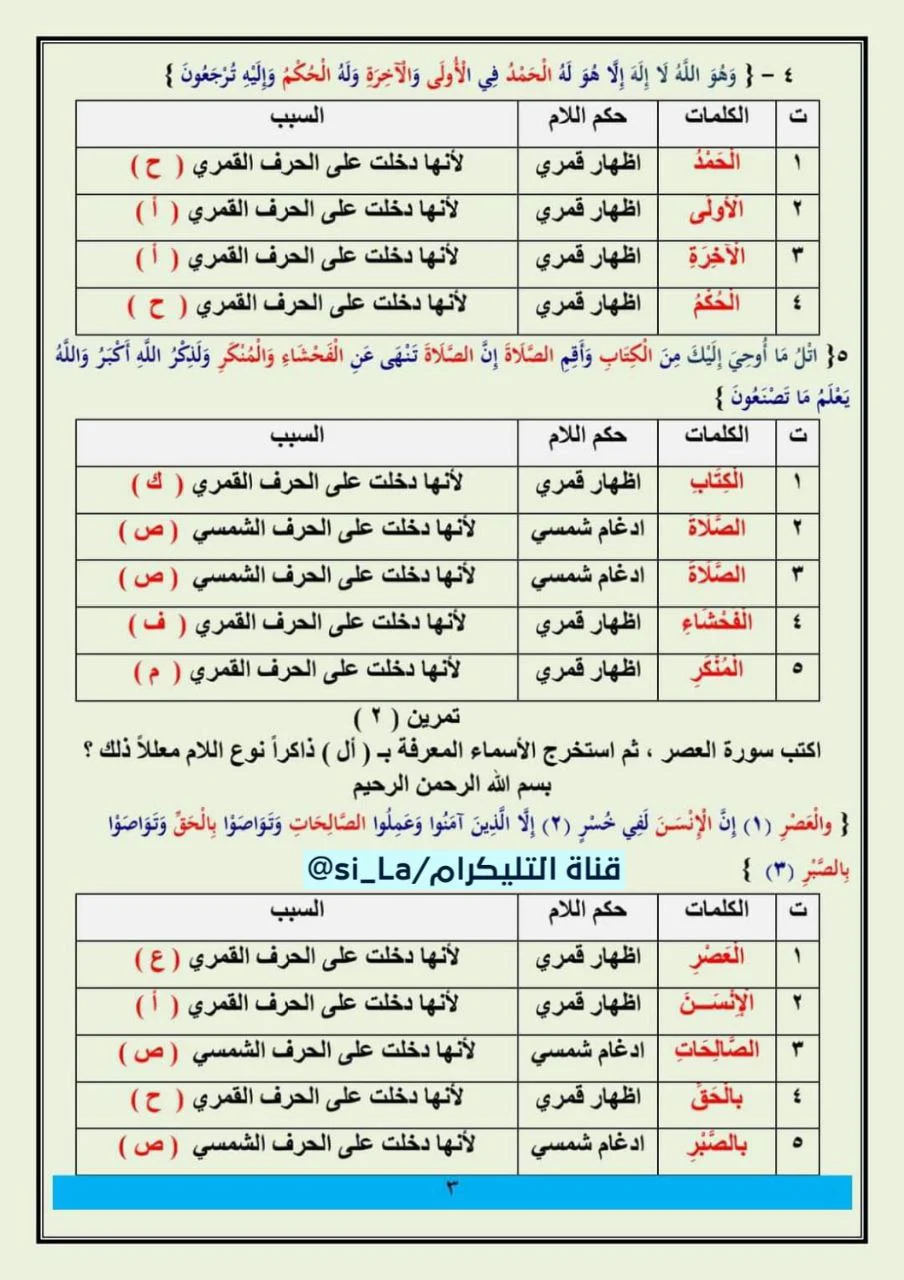 ٤ - { وَهُوَ اللَّهُ لَا إِلَهَ إِلَّا هُوَ لَهُ الْحَمْدُ فِي الْأُولَى وَالْآخِرَةِ وَلَهُ الْحُكْمُ وَإِلَيْهِ تُرْجَعُونَ }
ت الكلمات حكم اللام السبب
١ الْحَمْدُ اظهار قمري لأنها دخلت على الحرف القمري ( ح )
٢ الْأُولَى اظهار قمري لأنها دخلت على الحرف القمري ( أ )
٣ الْآخِرَةِ اظهار قمري لأنها دخلت على الحرف القمري ( أ )
٤ الْحُكْمُ اظهار قمري لأنها دخلت على الحرف القمري ( ح )
٥{ اتْلُ مَا أُوحِيَ إِلَيْكَ مِنَ الْكِتَابِ وَأَقِمِ الصَّلَاةَ إِنَّ الصَّلَاةَ تَنْهَى عَنِ الْفَحْشَاءِ وَالْمُنْكَرِ وَلَذِكْرُ اللَّهِ أَكْبَرُ وَاللَّهُ
يَعْلَمُ مَا تَصْنَعُونَ }
ت الكلمات حكم اللام السبب
١ الْكِتَابِ اظهار قمري لأنها دخلت على الحرف القمري ( ك )
٢ الصَّلَاةَ ادغام شمسي لأنها دخلت على الحرف الشمسي ( ص )
٣ الصَّلَاةَ ادغام شمسي لأنها دخلت على الحرف الشمسي ( ص )
٤ الْفَحْشَاءِ اظهار قمري لأنها دخلت على الحرف القمري ( ف )
٥ الْمُنْكَرِ اظهار قمري لأنها دخلت على الحرف القمري ( م )
تمرين ( ٢ )
اكتب سورة العصر ، ثم استخرج الأسماء المعرفة بـ ( أل ) ذاكراً نوع اللام معللاً ذلك ؟
بسم الله الرحمن الرحيم
{ والْعَصْرِ (١) إِنَّ الْإِنْسَـنَ لَفِي خُسْرٍ (٢) إِلَّا الَّذِينَ آمَنُوا وَعَمِلُوا الصَّالِحَاتِ وَتَوَاصَوْا بِالْحَقِّ وَتَوَاصَوْا
بِالصَّبْرِ (٣) }
قناة التليكرام/si_La@
ت الكلمات حكم اللام السبب
١ الْعَصْرِ اظهار قمري لأنها دخلت على الحرف القمري ( ع )
٢ الْإِنْسَــنَ اظهار قمري لأنها دخلت على الحرف القمري ( أ )
٣ الصَّالِحَاتِ ادغام شمسي لأنها دخلت على الحرف الشمسي ( ص )
٤ بِالْحَقِّ اظهار قمري لأنها دخلت على الحرف القمري ( ح )
٥ بِالصَّبْرِ ادغام شمسي لأنها دخلت على الحرف الشمسي ( ص )
٣